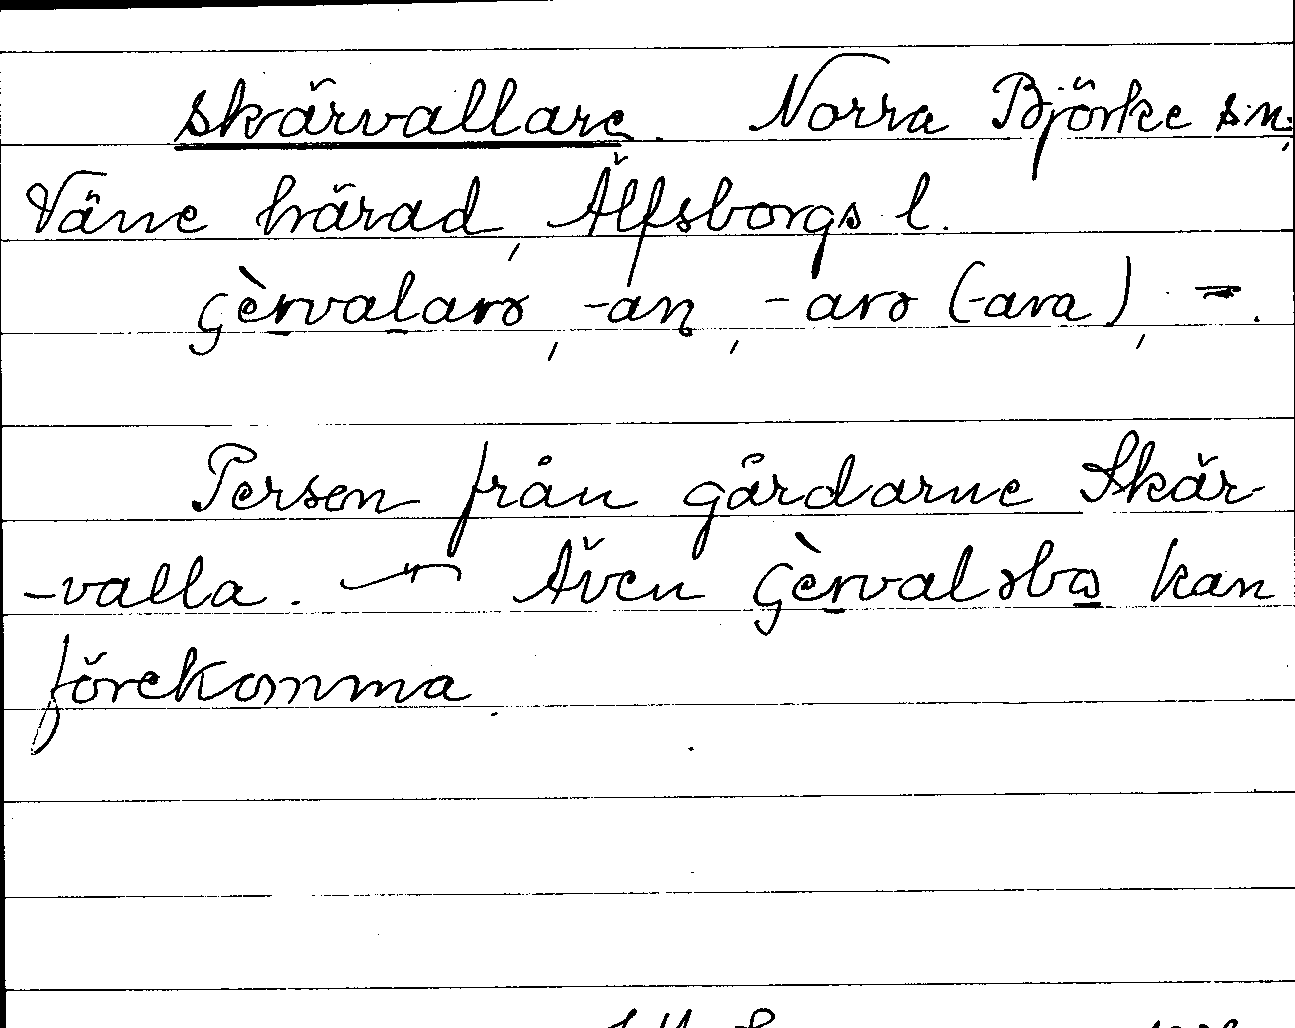 skärvallare. Norra Björke sn;
Väne härad, Älfsborgs l.
çèrvalarə, -an, -arə (-ara), =.
Person från gårdarne Skär
-valla. — Även çèrvalsbo kan
förekomma.